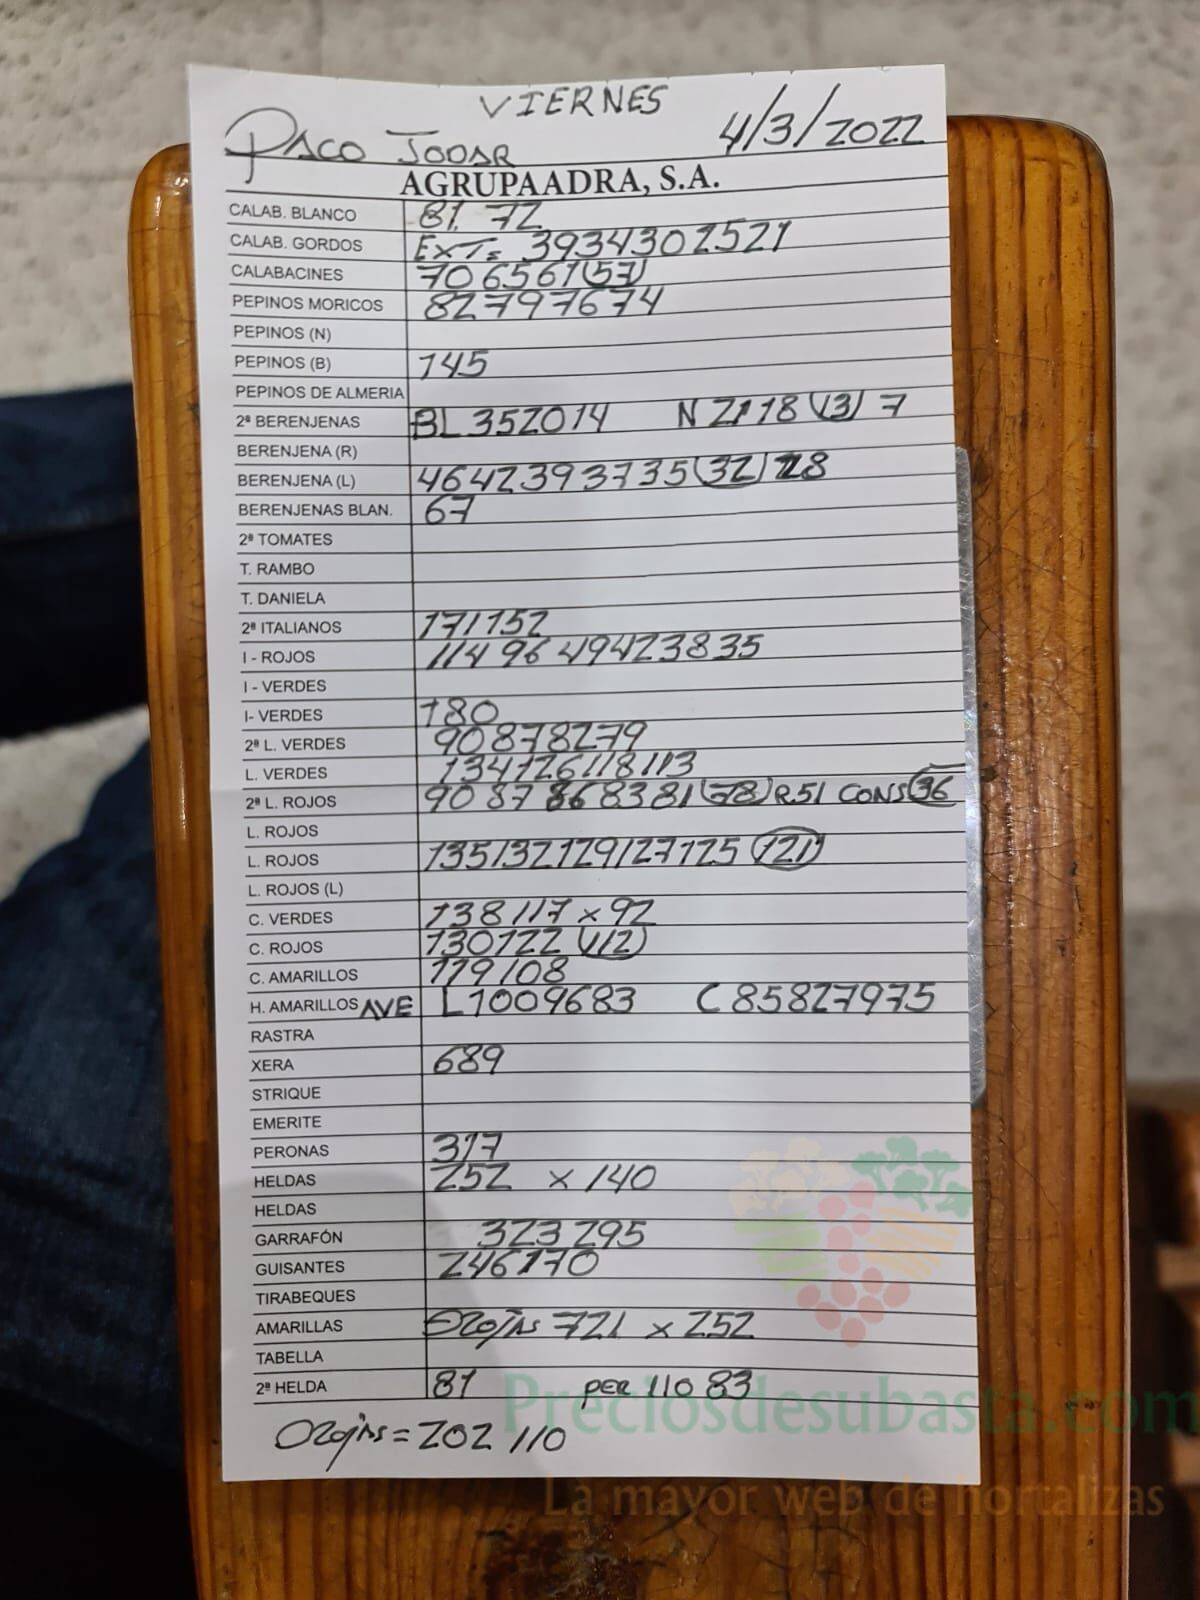 VIERNES
PACO JODAR 4/3/2022
AGRUPAADRA, S.A.
CALAB. BLANCO 81. 72
CALAB. GORDOS EXT= 3934302521
CALABACINES 706561(57)
PEPINOS MORICOS 82797674
PEPINOS (N)
PEPINOS (B) 145
PEPINOS DE ALMERIA
2ª BERENJENAS BL352014 N 2118(13)7
BERENJENA (R)
BERENJENA (L) 4642393735(32)28
BERENJENAS BLAN. 67
2ª TOMATES
T. RAMBO
T. DANIELA
2ª ITALIANOS 171152
I - ROJOS 114 96 49423835
I - VERDES
I- VERDES 180
2ª L. VERDES 90878279
L. VERDES 134126118113
2ª L. ROJOS 90 87 868381(78)R.51 CONS(36)
L. ROJOS
L. ROJOS 135132129127125(121)
L. ROJOS (L)
C. VERDES 138117 x 92
C. ROJOS 130122(112)
C. AMARILLOS 119108
H. AMARILLOS AVE L1009683 C85827975
RASTRA
XERA 689
STRIQUE
EMERITE
PERONAS 317
HELDAS 252 x 140
HELDAS
GARRAFÓN 323 295
GUISANTES 246170
TIRABEQUES
AMARILLAS 721 x 252
TABELLA
2ª HELDA 81 PER 110 83
= 202 110
Preciosdesubasta.com
La mayor web de hortalizas